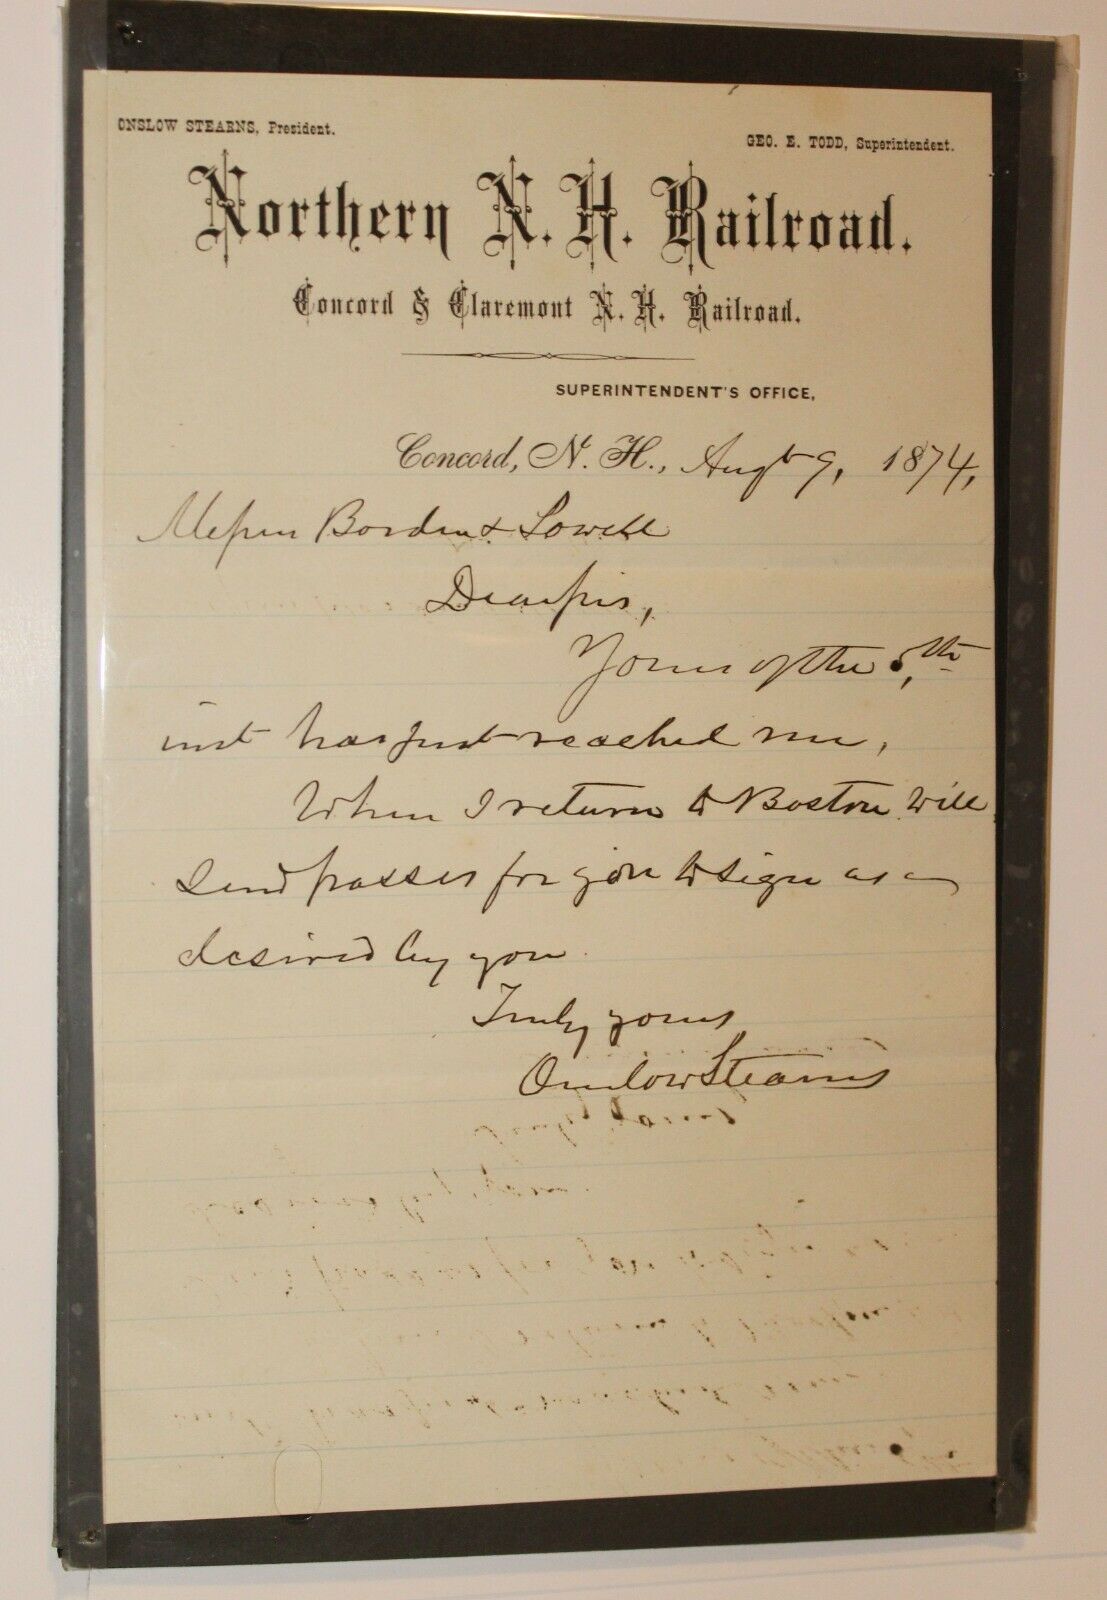 ONSLOW STEARNS, President.
GEO. E. TODD, Superintendent.
Northern N. H. Railroad.
Concord & Claremont N. H. Railroad.
SUPERINTENDENT'S OFFICE,
Concord, N. H., Augt 9, 1874,
Messrs Borden & Lowell
Dear Sirs,
Yours of the th
inst has just reached me,
When I return to Boston will
send passes for you to sign as
desired by you
Truly yours
Onslow Stearns